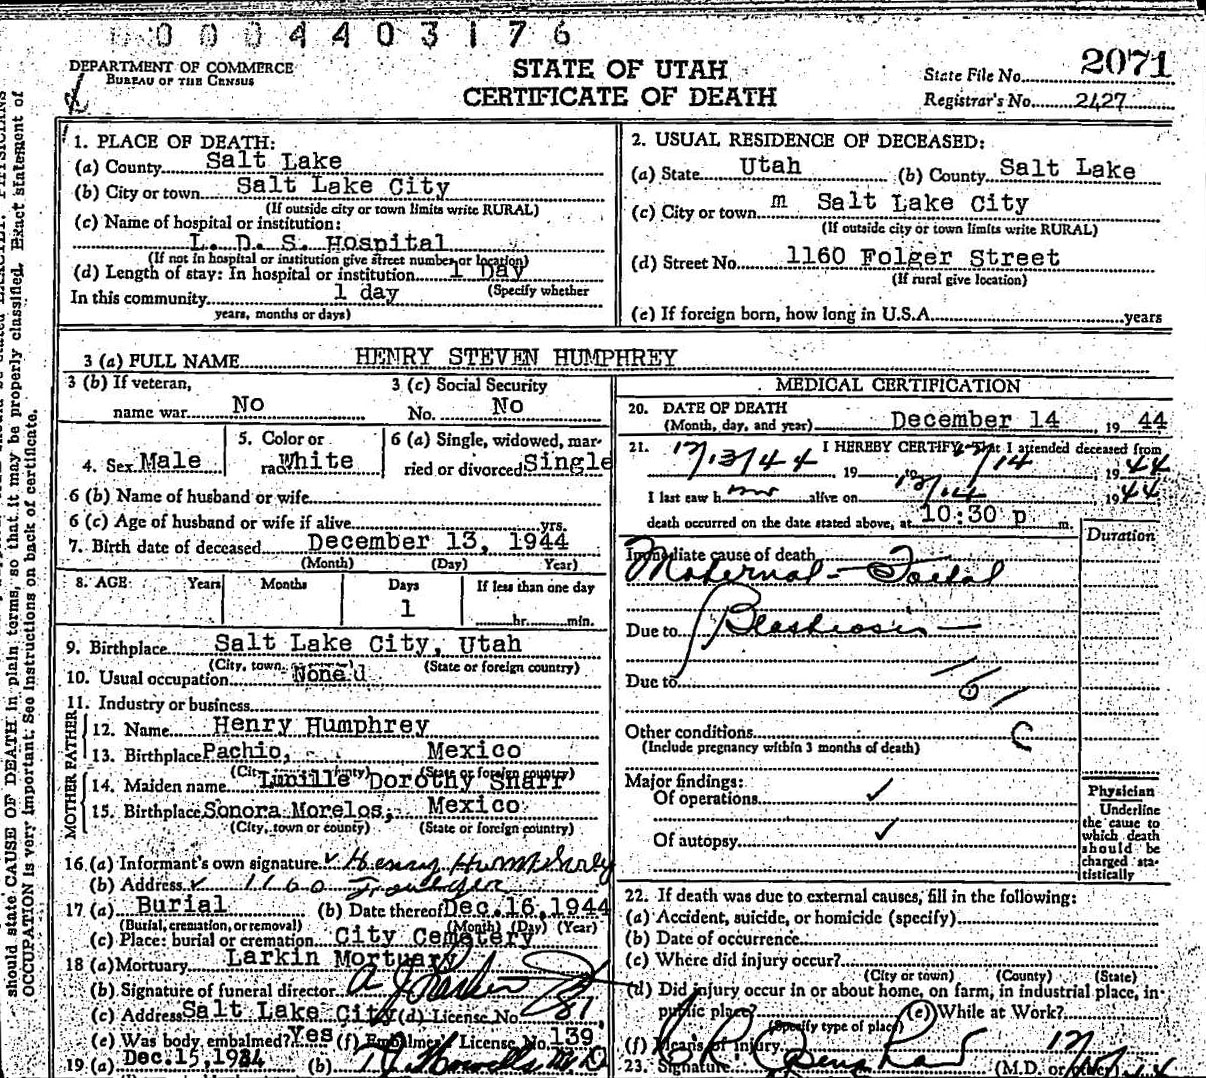 0004403176
DEPARTMENT OF COMMERCE
BUREAU OF THE CENSUS
STATE OF UTAH
CERTIFICATE OF DEATH
State File No. 2071
Registrar's No. 2427
should state CAUSE OF DEATH in plain terms, so that it may be properly classified. Exact statement of
OCCUPATION is very important. See instructions on back of certificate.
1. PLACE OF DEATH:
(a) County Salt Lake
(b) City or town Salt Lake City
(If outside city or town limits write RURAL)
(c) Name of hospital or institution:
L. D. S. Hospital
(If not in hospital or institution give street number or location)
(d) Length of stay: In hospital or institution 1 Day
(Specify whether
In this community 1 day
years, months or days)
2. USUAL RESIDENCE OF DECEASED:
(a) State Utah (b) County Salt Lake
(c) City or town m Salt Lake City
(If outside city or town limits write RURAL)
(d) Street No. 1160 Folger Street
(If rural give location)
(e) If foreign born, how long in U.S.A. years
3 (a) FULL NAME HENRY STEVEN HUMPHREY
3 (b) If veteran, name war No
3 (c) Social Security No. No
4. Sex Male
5. Color or race White
6 (a) Single, widowed, married or divorced Single
6 (b) Name of husband or wife
6 (c) Age of husband or wife if alive yrs.
7. Birth date of deceased December 13, 1944
(Month) (Day) Year)
8. AGE Years Months Days If less than one day
1 hr. min.
9. Birthplace Salt Lake City, Utah
(City, town (State or foreign country)
10. Usual occupation None
11. Industry or business
FATHER
12. Name Henry Humphrey
13. Birthplace Pachio, Mexico
(State or foreign country)
MOTHER
14. Maiden name Lucille Dorothy Sharr
15. Birthplace Sonora Morelos, Mexico
(City, town or county) (State or foreign country)
16 (a) Informant's own signature Henry Humphrey
(b) Address 1160
17 (a) Burial (b) Date thereof Dec. 16, 1944
(Burial, cremation, or removal) (Month) (Day) (Year)
(c) Place: burial or cremation City Cemetery
18 (a) Mortuary Larkin Mortuary
(b) Signature of funeral director A J Larkin
(c) Address Salt Lake City (d) License No. 81
(e) Was body embalmed? Yes (f) Embalmer License No. 139
19 (a) Dec. 15, 1944 (b) M D
MEDICAL CERTIFICATION
20. DATE OF DEATH
(Month, day, and year) December 14, 19 44
21. I HEREBY CERTIFY, That I attended deceased from
12/13/44 19 12/14, 19 44
I last saw h im alive on 12/14 19 44
death occurred on the date stated above, at 10:30 p m.
Duration
Immediate cause of death
Maternal - Foetal
Due to Blastosis
Due to
161
C
Other conditions
(Include pregnancy within 3 months of death)
Major findings:
Of operations ✓
Of autopsy ✓
Physician
Underline
the cause to
which death
should be
charged sta-
tistically
22. If death was due to external causes, fill in the following:
(a) Accident, suicide, or homicide (specify)
(b) Date of occurrence
(c) Where did injury occur?
(City or town) (County) (State)
(d) Did injury occur in or about home, on farm, in industrial place, in
public place? (e) While at Work?
(Specify type of place)
(f) Means of injury
23. Signature (M.D. or other)